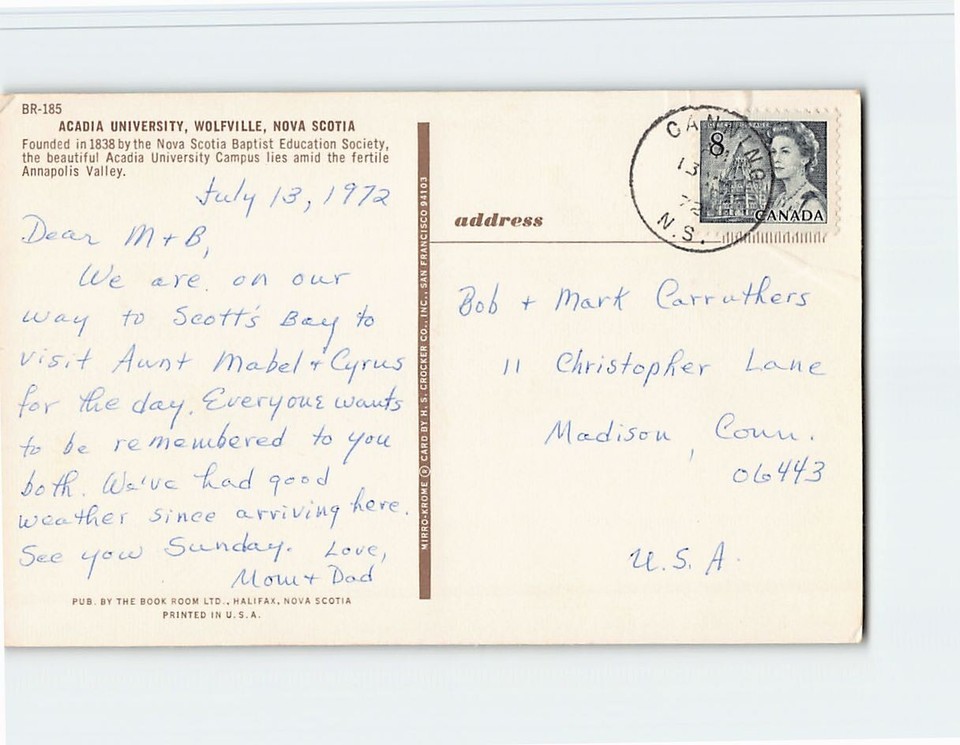 BR-185
ACADIA UNIVERSITY, WOLFVILLE, NOVA SCOTIA
Founded in 1838 by the Nova Scotia Baptist Education Society,
the beautiful Acadia University Campus lies amid the fertile
Annapolis Valley.
July 13, 1972
Dear M + B,
We are on our
way to Scott's Bay to
visit Aunt Mabel + Cyrus
for the day. Everyone wants
to be remembered to you
both. We've had good
weather since arriving here.
See you Sunday. Love,
Mom + Dad
PUB. BY THE BOOK ROOM LTD., HALIFAX, NOVA SCOTIA
PRINTED IN U.S.A.
MIRRO-KROME ® CARD BY H. S. CROCKER CO., INC., SAN FRANCISCO 94103
address
CANNING
13
72
N.S.
8
CANADA
Bob + Mark Carruthers
11 Christopher Lane
Madison, Conn.
06443
U.S.A.